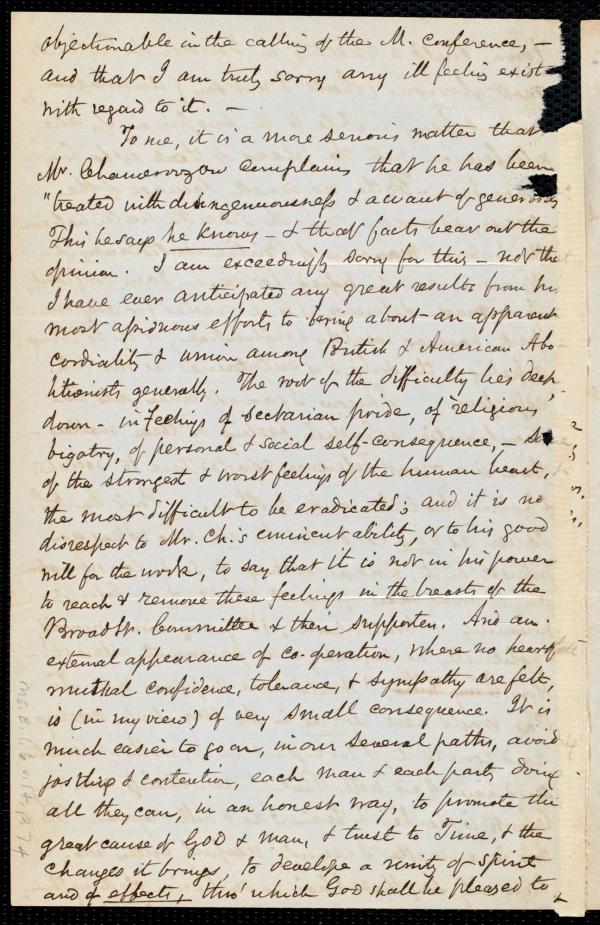 objectionable in the calling of the M. Conference, —
and that I am truly sorry any ill feeling exist
with regard to it. —
To me, it is a more serious matter that
Mr. Chamerovzow complains that he has been
"treated with disingenuousness & a want of generosity
This he says he knows — & that facts bear out the
opinion. I am exceedingly sorry for this — not that
I have ever anticipated any great results from his
most assiduous efforts to bring about an apparent
cordiality & union among British & American Abo
litionists generally. The root of the difficulty lies deep
down – in feelings of Sectarian pride, of religious
bigotry, of personal & social self-consequence, –
of the strongest & worst feelings of the human heart,
the most difficult to be eradicated; and it is no
disrespect to Mr. Ch.'s eminent ability, or to his good
will for the work, to say that it is not in his power
to reach & remove these feelings in the breasts of the
Broad St. Committee & their supporters. And an
external appearance of co-operation, where no hearty
mutual confidence, tolerance, & sympathy are felt,
is (in my view) of very small consequence. It is
much easier to go on, in our several paths, avoid
jostling & contention, each man & each party doing
all they can, in an honest way, to promote the
great cause of God & man, & trust to Time, & the
changes it brings, to develope a unity of spirit
and of effects, thro' which God shall be pleased to
Ms.B.1.6 v.14 p.74